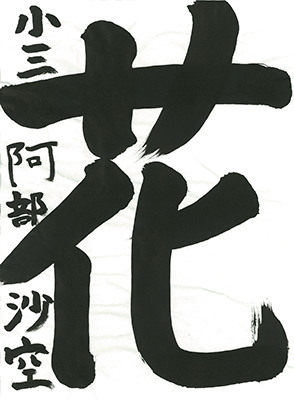 花
小三 阿部 沙空